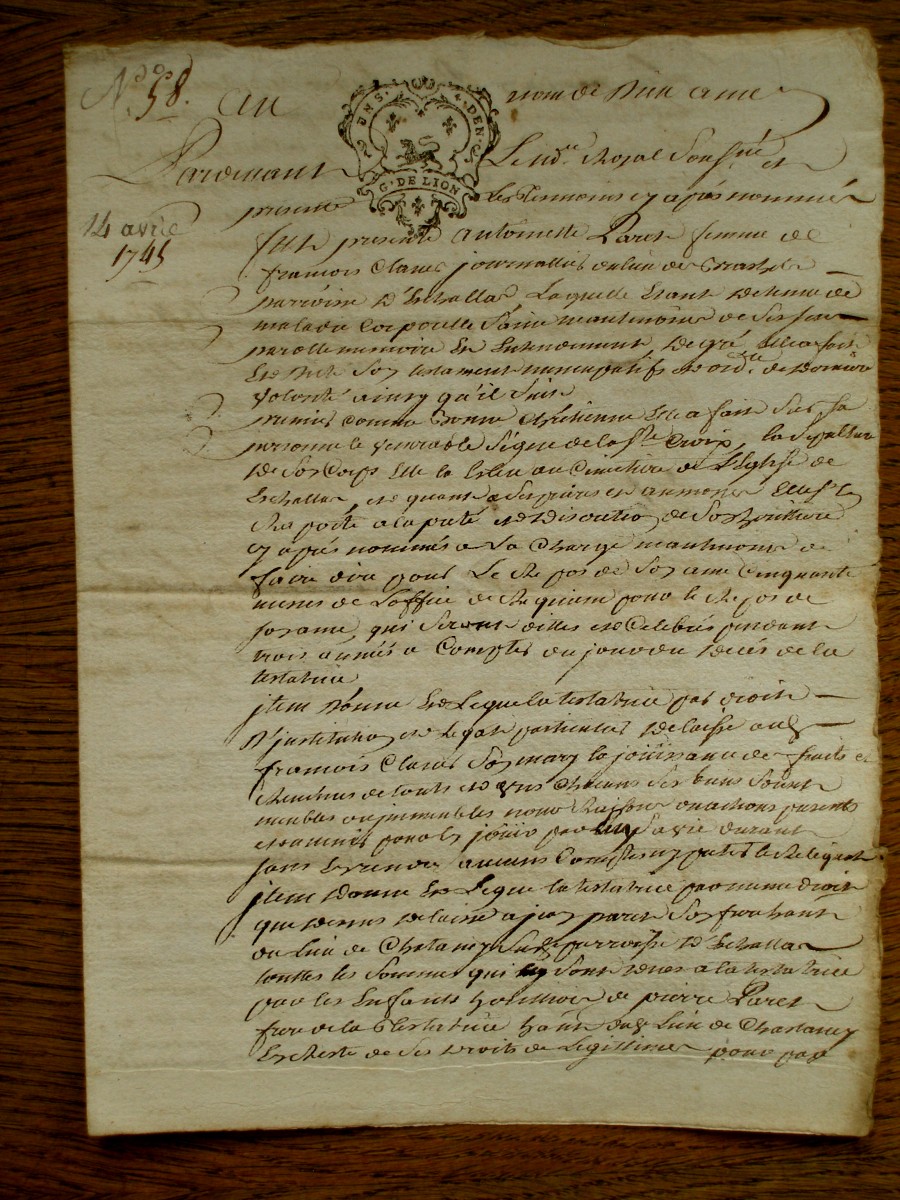 N° 58.
Au nom de Dieu amen
DEN S. 4. DEN.
G. DE LION
Pardevant Le no.re Royal Sousné et
presente Les tesmoins cy après nommés
14 avril
1745
fut presente Antoinette Paret femme de
francois Claret journallier du lieu de
parroisse D'Echallas Laquelle Etant Detenue de
maladie corporelle Saine neantmoins de Ses sens
parolle memoire Et Entendement De gré Elle a fait
Et Dicté Son testament nuncupatif et ord.ce de Derniere
Volonté ainsy qu'il Suit
premier comme bonne Chretienne Elle a fait Sur sa
personne le Venerable Signe de la Ste Croix, la Sepulture
De Son Corps Elle la Esleu au Cimetiere de L'Eglise de
Echallas, et quant a Ses prieres et aumones Elle s'en
Raporte a la pieté et Discretion de Son heritiere
cy après nommée a La Charge neantmoins de
faire dire pour Le Repos de Son ame Cinquante
messes de L'office de Requiem pour le Repos de
son ame, qui Seront dittes et Celebrés pendant
trois années a Compter du jour du Deces de la
testatrice
jtem Donne Et Legue la testatrice par droit
D'jnstitution et Legat particulier Delaisse aud.
francois Claret Son mary la jouissance des fruits et
Revenus de touts et Uns Chacuns Ses biens Soient
meubles ou jmmeubles noms Raisons ou actions presents
et a venir pour En jouir par luy Sa vie durant
sans En rendre aucun Compte ny preter le Reliquat
jtem Donne Et Legue la testatrice par meme droit
que Dessus Delaisse a jean paret Son frere habitant
du Lieu de Chataney Susd. parroisse D'Echallas
touttes les Sommes qui luy Sont Dues a la testatrice
par les Enfants heritiers de pierre Paret
frere de la testatrice hants aud. Lieu de Chataney
En Reste de Ses Droits de Legitime pour par